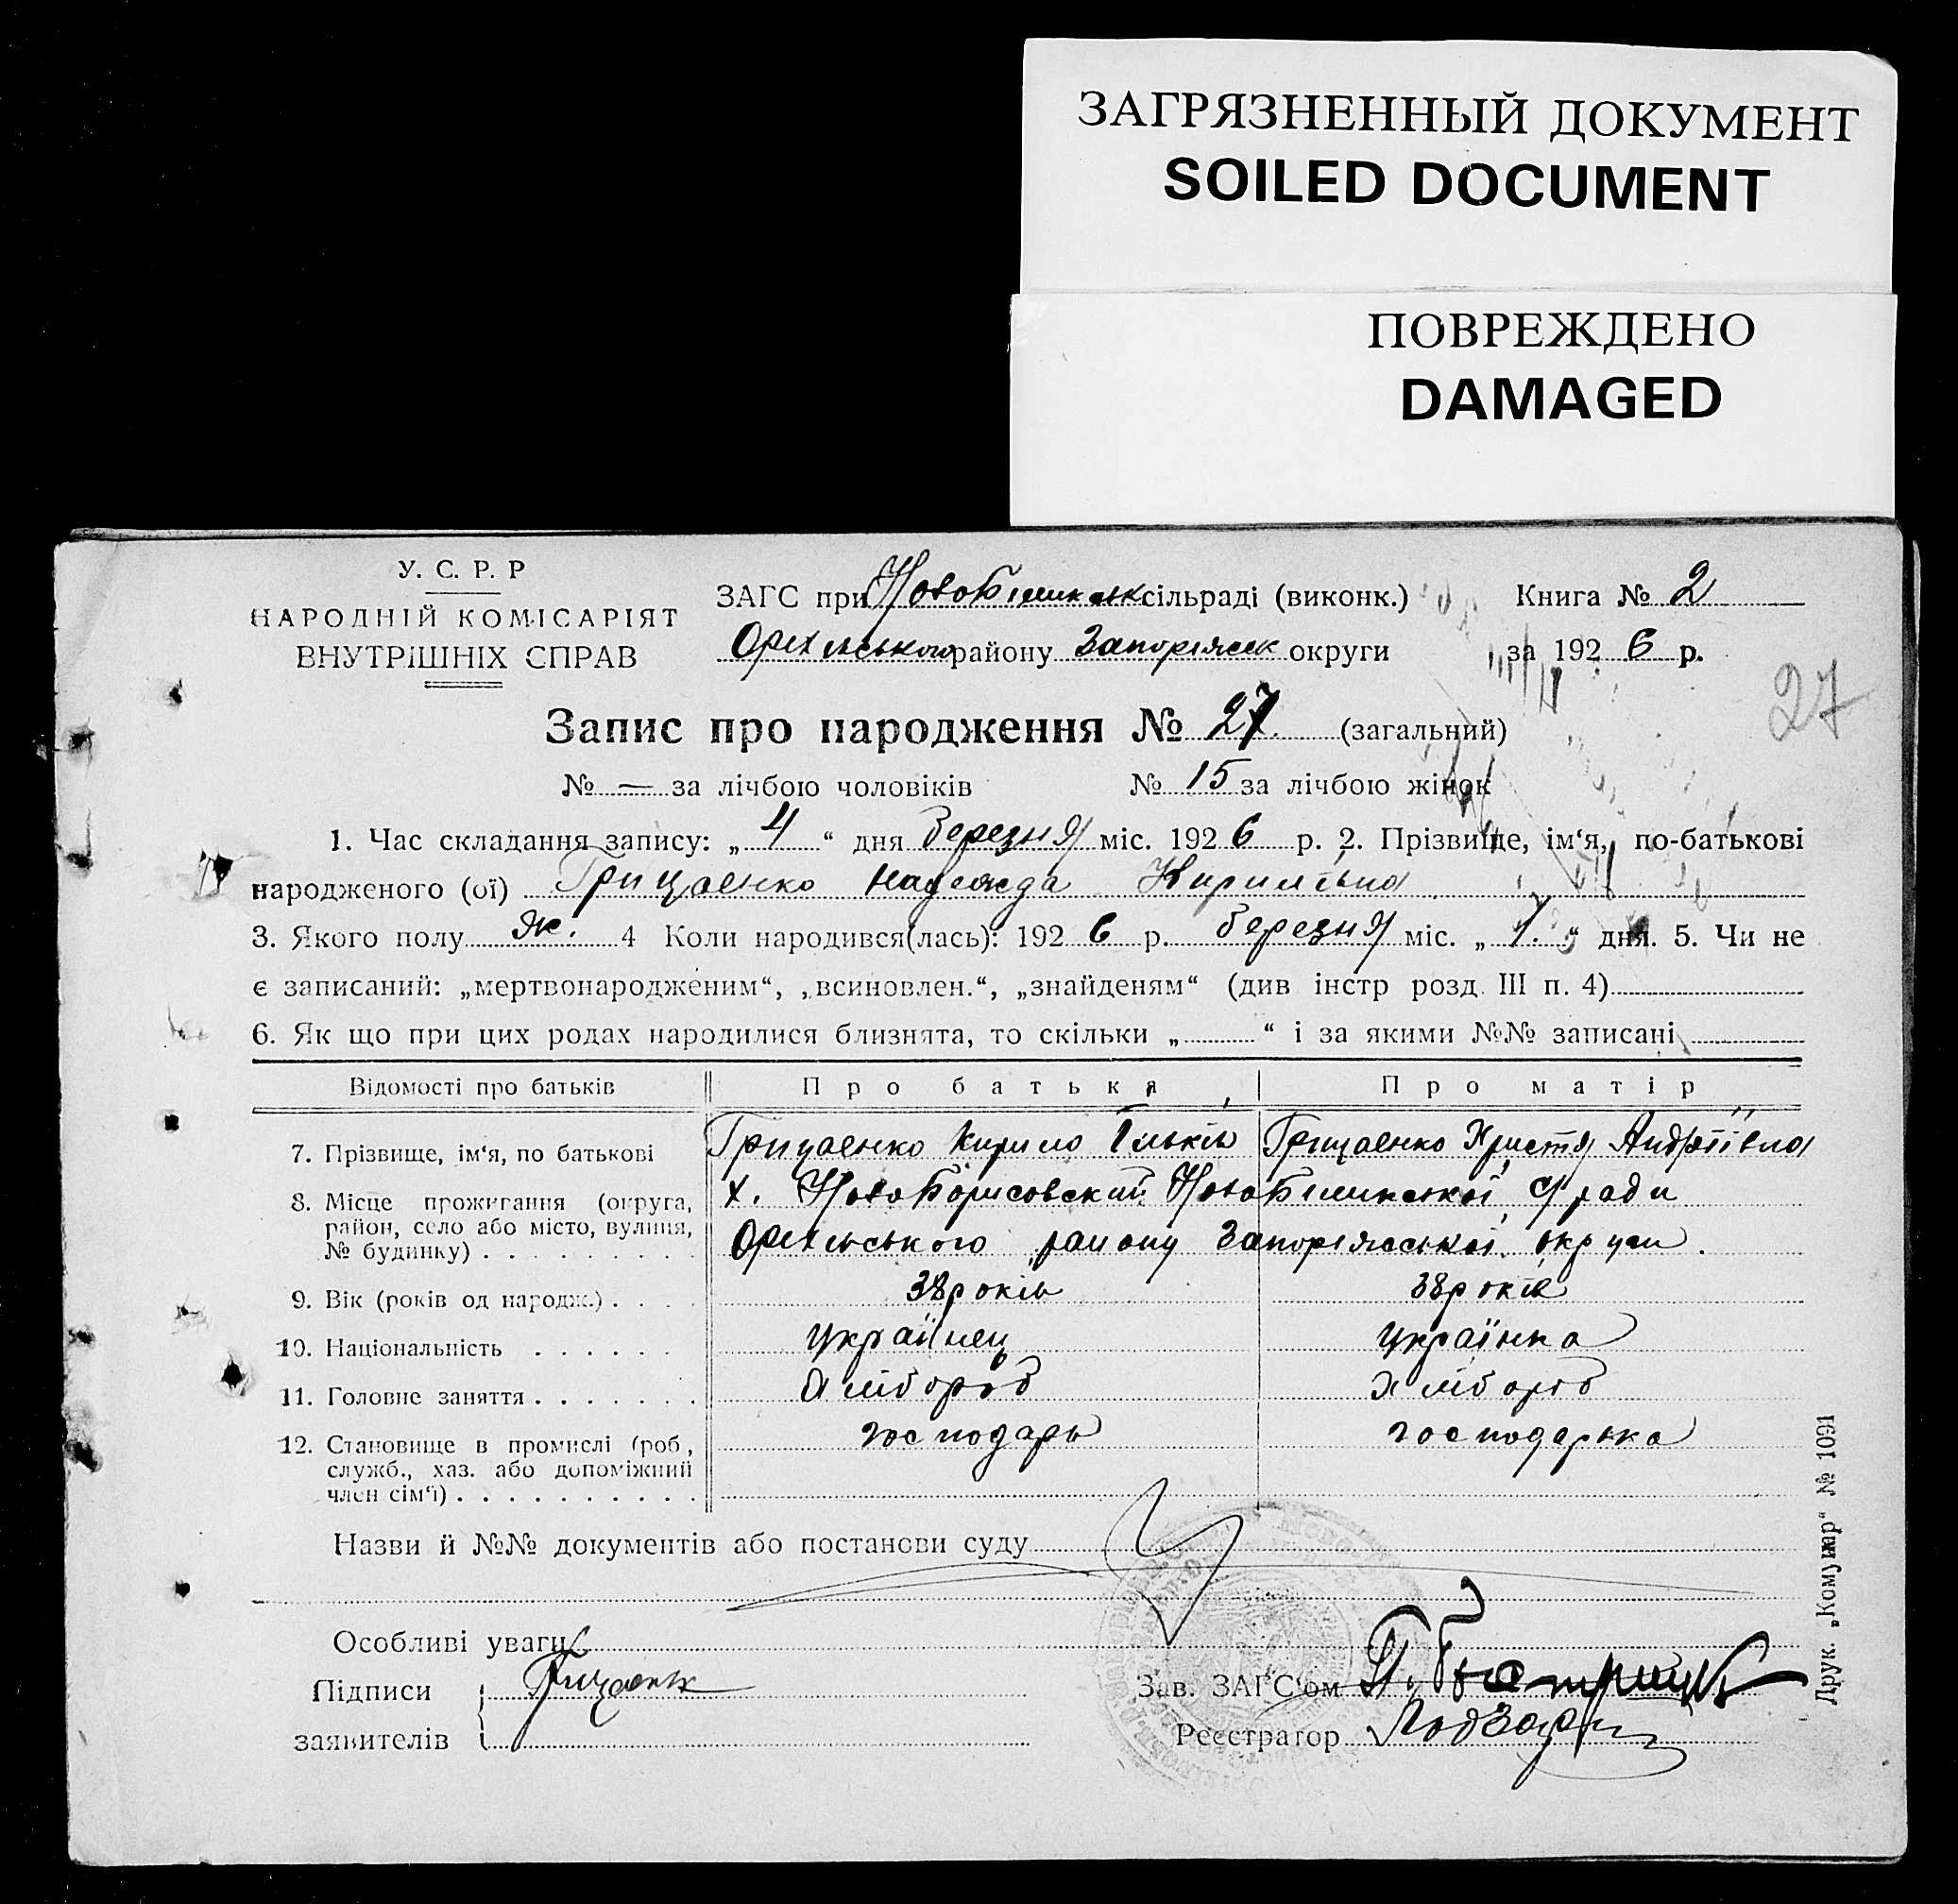 ЗАГРЯЗНЕННЫЙ ДОКУМЕНТ
SOILED DOCUMENT
ПОВРЕЖДЕНО
DAMAGED
У. С. Р. Р
НАРОДНІЙ КОМІСАРІЯТ
ВНУТРІШНІХ СПРАВ
ЗАГС при сільраді (виконк.)
Оріхівського району Запоріжськ округи
Книга № 2
за 1926 р.
27
Запис про народження № 27. (загальний)
№ — за лічбою чоловіків № 15 за лічбою жінок
1. Час складання запису: „ 4 “ дня березня міс. 1926 р. 2. Прізвище, ім‘я, по-батькові
народженого (ої) Грицаенко Надежда Кирилівна
3. Якого полу ж. 4 Коли народився(лась): 1926 р. березня міс. „ 1. “ дня. 5. Чи не
є записаний: „мертвонародженим“, „всиновлен.“, „знайденям“ (див інстр розд. III п. 4)
6. Як що при цих родах народилися близнята, то скільки „ “ і за якими №№ записані
Відомості про батьків Про батька Про матір
7. Прізвище, ім‘я, по батькові Грицаенко Кирило Грицаенко Христя Андріївна
8. Місце прожигання (округа, х. НовоБорисовский С/ради
район, село або місто, вулиця, району Запоріжської округи.
№ будинку)
9. Вік (років од народж.) 38 років 38 років
10. Національність українець українка
11. Головне заняття хлібороб хлібороб
12. Становище в промислі (роб., господарь господарька
служб., хаз. або допоміжний
член сім‘ї)
Назви й №№ документів або постанови суду
Особливі уваги
Підписи Грицаенк
заявителів
Зав. ЗАГС‘ом
Реєстратор
Друк. „Комунар“ № 1091